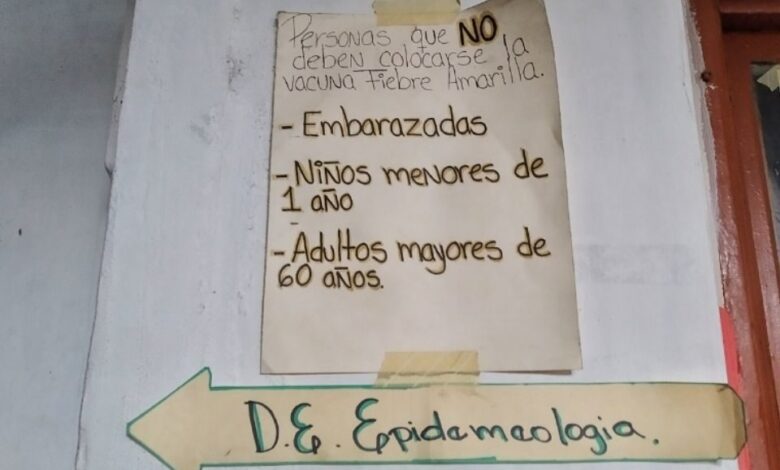 Personas que NO
deben colocarse la
vacuna Fiebre Amarilla.
- Embarazadas
- Niños menores de
1 año
- Adultos mayores de
60 años.
D.E. Epidemeologia.